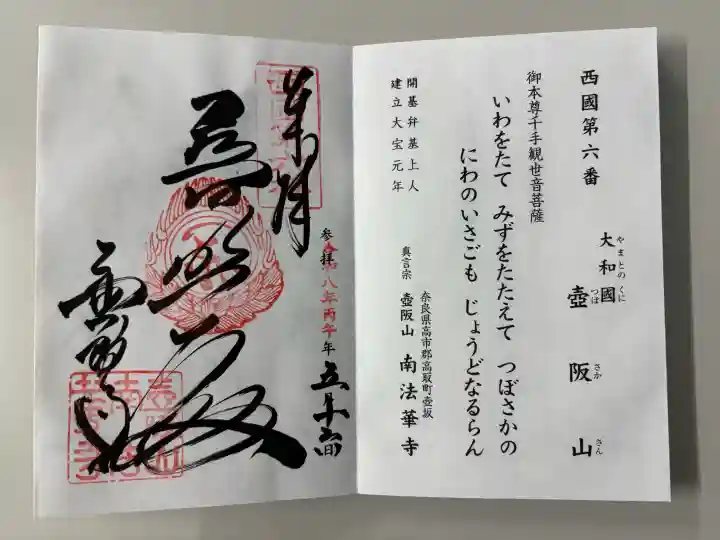 西國第六番
大和國
やまとのくに
壺阪山
つぼさかさん
御本尊千手観世音菩薩
いわをたて みずをたたえて つぼさかの
にわのいさごも じょうどなるらん
開基弁基上人
建立大宝元年
奈良県高市郡高取町壺坂
真言宗 壺阪山 南法華寺
奉拝
参拝 令和八年丙午年 五月十六日
普照殿
壺阪寺